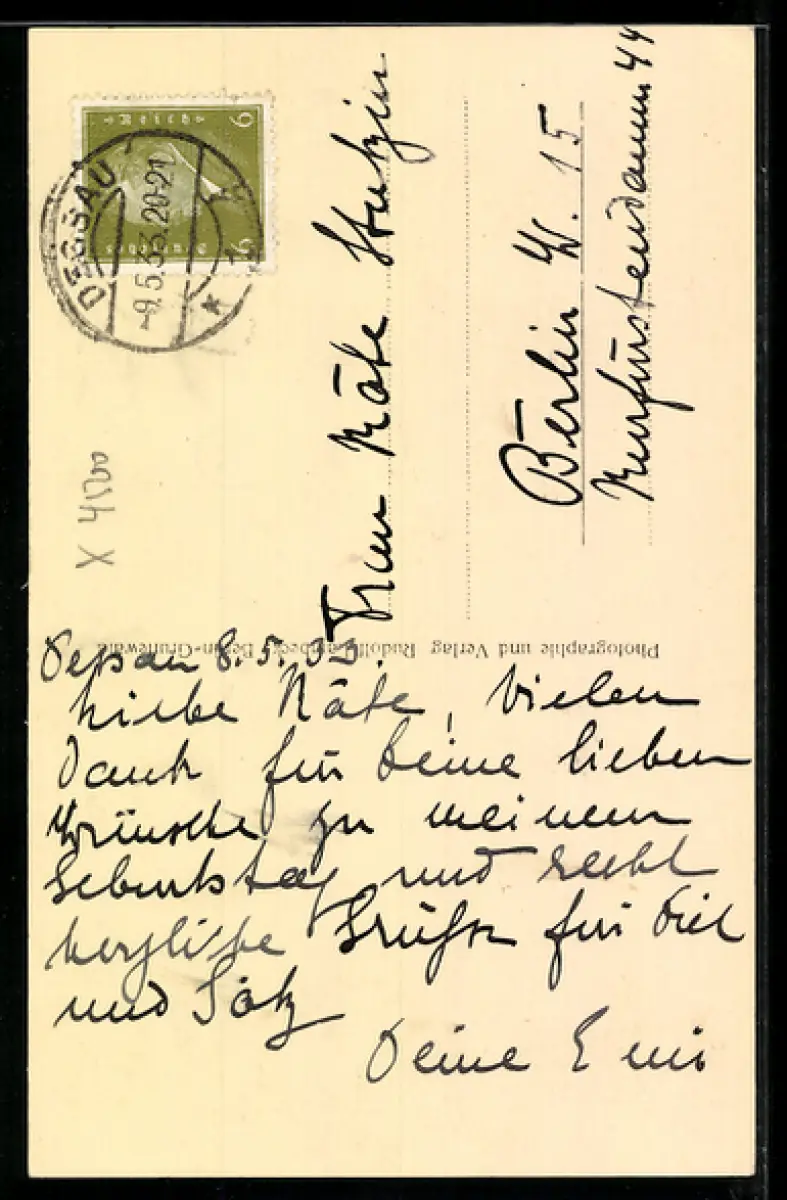 Dessau 8.5.33.
Liebe Käte, Vielen
Dank für Deine lieben
Wünsche zu meinem
Geburtstag und recht
herzliche Grüße für Dich
und Götz
Deine Emi
Frau Käte Stutzin
Berlin W. 15
Kurfürstendamm 44
DESSAU
-9.5.33.20-21
6
6
Deutsches
Reich
X 4500
Photographie und Verlag Rudolf Lambeck, Berlin-Grunewald